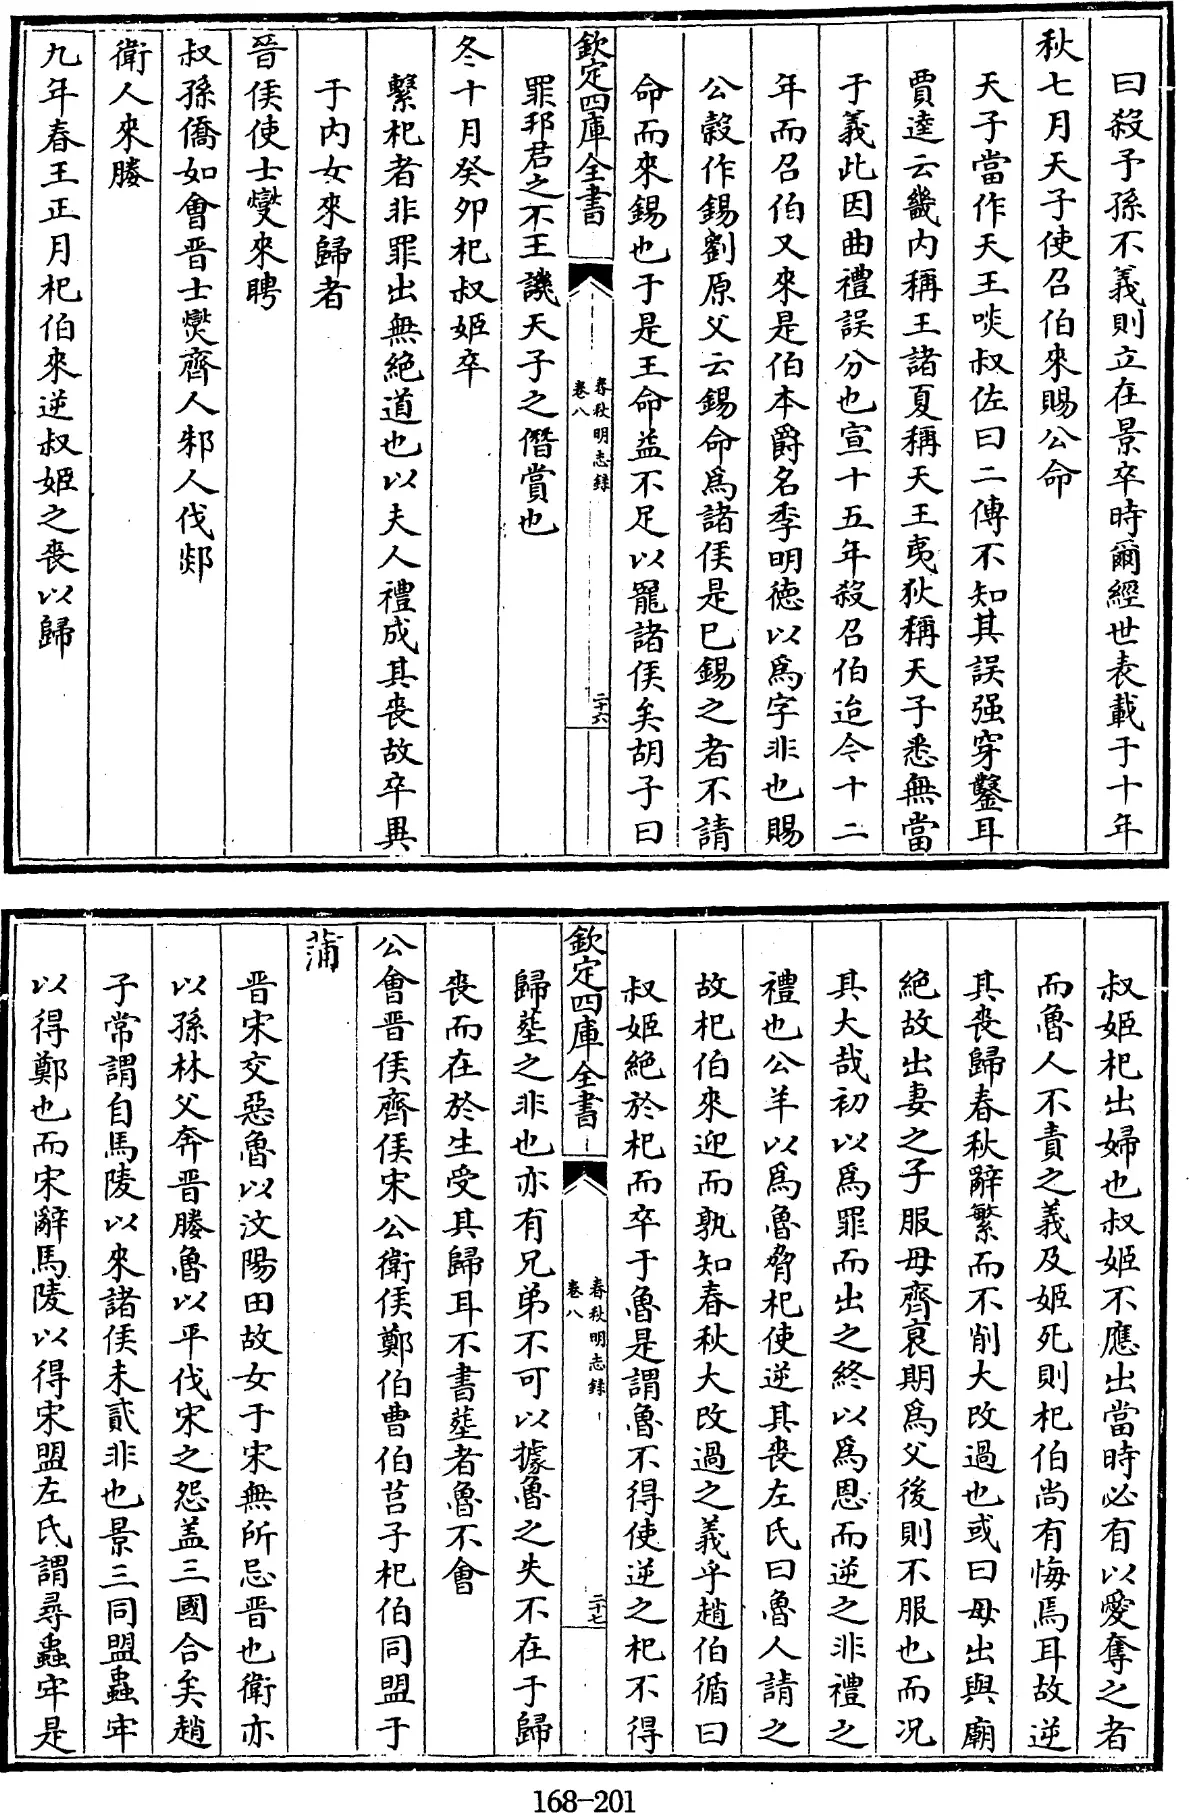 曰殺予孫不義則立在景卒時爾經世表載于十年
秋七月天子使召伯來賜公命
天子當作天王啖叔佐曰二傳不知其誤强穿鑿耳
賈逵云畿内稱王諸夏稱天王夷狄稱天子悉無當
于義此因曲禮誤分也宣十五年殺召伯迨今十二
年而召伯又來是伯本爵名季明德以爲字非也賜
公穀作錫劉原父云錫命爲諸侯是已錫之者不請
命而來錫也于是王命益不足以寵諸侯矣胡子曰
欽定四庫全書
春秋明志錄
卷八
二十六
罪邦君之不王譏天子之僭賞也
冬十月癸卯杞叔姬卒
繫杞者非罪出無絶道也以夫人禮成其喪故卒異
于内女來歸者
晉侯使士燮來聘
叔孫僑如會晋士燮齊人邾人伐郯
衛人來媵
九年春王正月杞伯來逆叔姬之喪以歸
叔姬杞出婦也叔姬不應出當時必有以愛奪之者
而魯人不責之義及姬死則杞伯尚有悔焉耳故逆
其喪歸春秋辭繁而不削大改過也或曰母出與廟
絶故出妻之子服母齊衰期爲父後則不服也而况
其大哉初以爲罪而出之終以爲恩而逆之非禮之
禮也公羊以爲魯脅杞使逆其喪左氏曰魯人請之
故杞伯來迎而孰知春秋大改過之義乎趙伯循曰
叔姬絶於杞而卒于魯是謂魯不得使逆之杞不得
欽定四庫全書
春秋明志錄
卷八
二十七
歸塟之非也亦有兄弟不可以據魯之失不在于歸
喪而在於生受其歸耳不書塟者魯不會
公會晋侯齊侯宋公衛侯鄭伯曹伯莒子杞伯同盟于
蒲
晋宋交惡魯以汶陽田故女于宋無所忌晋也衛亦
以孫林父奔晋媵魯以平伐宋之怨盖三國合矣趙
子常謂自馬陵以來諸侯未貳非也景三同盟蟲牢
以得鄭也而宋辭馬陵以得宋盟左氏謂尋蟲牢是
168-201